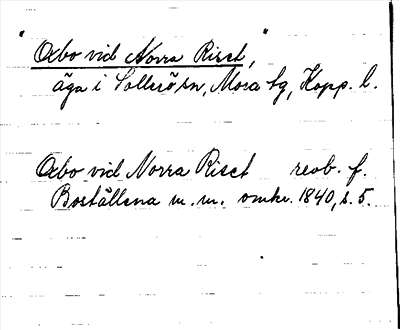 Oxbo vid Norra Riset,
äga i Sollerö sn, Mora tg, Kopp. l.
Oxbo vid Norra Riset reob. f.
Boställena m. m. omkr. 1840, s. 5.